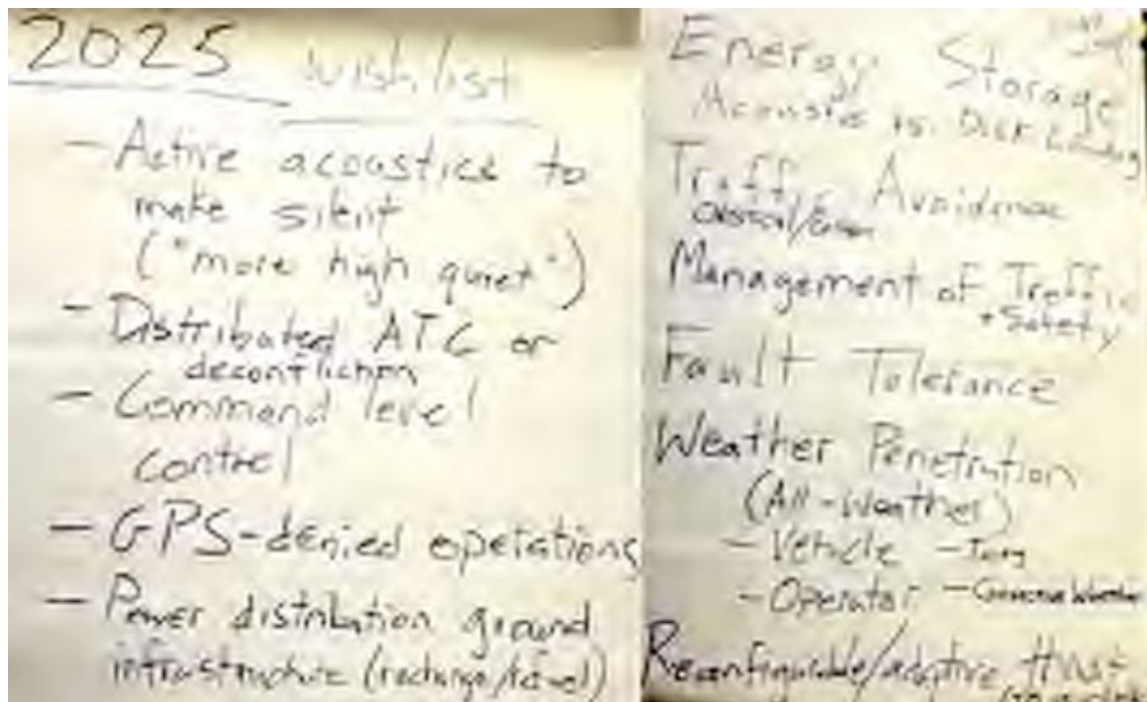 2025 wishlist
- Active acoustics to
make silent
("more high quiet")
- Distributed ATC or
deconfliction
- Command level
control
- GPS-denied operations
- Power distribution ground
infrastructure (recharge/refuel)
Energy Storage
Acoustics vs. Disk Loading
Traffic Avoidance
Management of Traffic
+ Safety
Fault Tolerance
Weather Penetration
(All-Weather)
- Vehicle - Icing
- Operator - Convective Weather
Reconfigurable/adaptive thrust